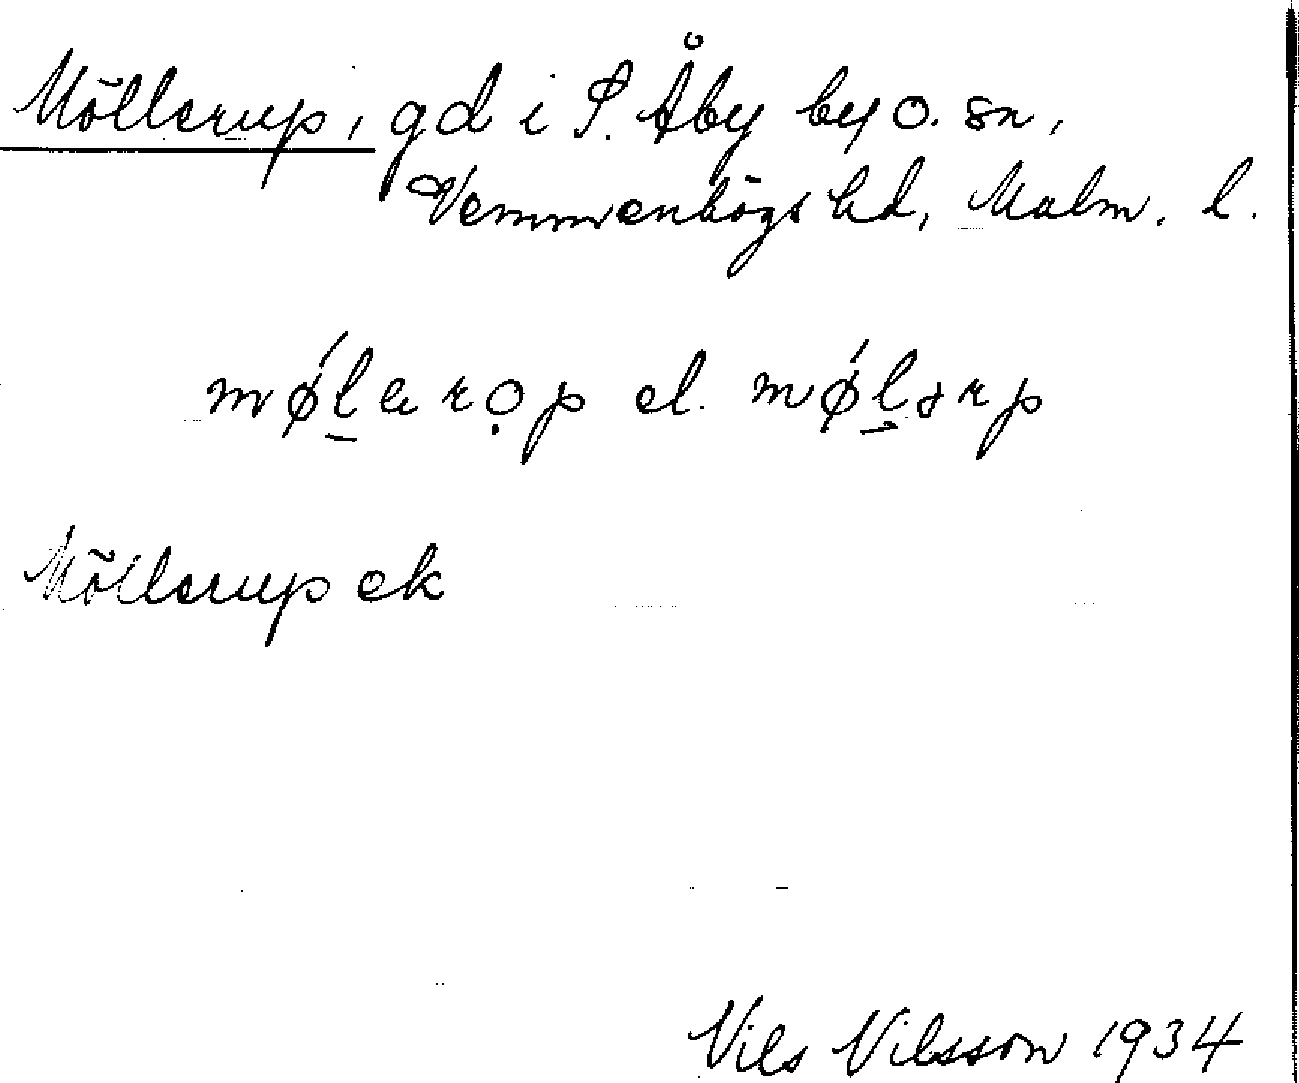 Möllerup, gd i S. Åby by o. sn,
Vemmenhögs hd, Malm. l.
mǿl̠ a rọp el. mǿl̠ ərp
Möllerup ek
Nils Nilsson 1934